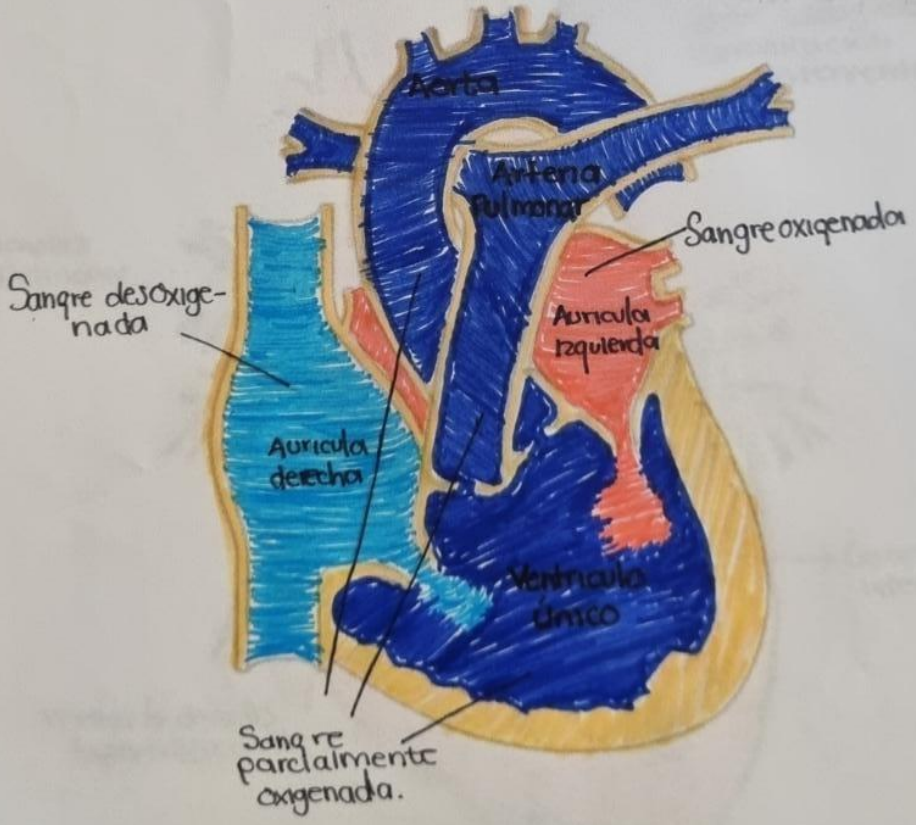 Aorta
Arteria
Pulmonar
Sangre oxigenada
Sangre desoxige-
nada
Auricula
Izquierda
Auricula
derecha
Ventriculo
Único
Sangre
parcialmente
oxigenada.